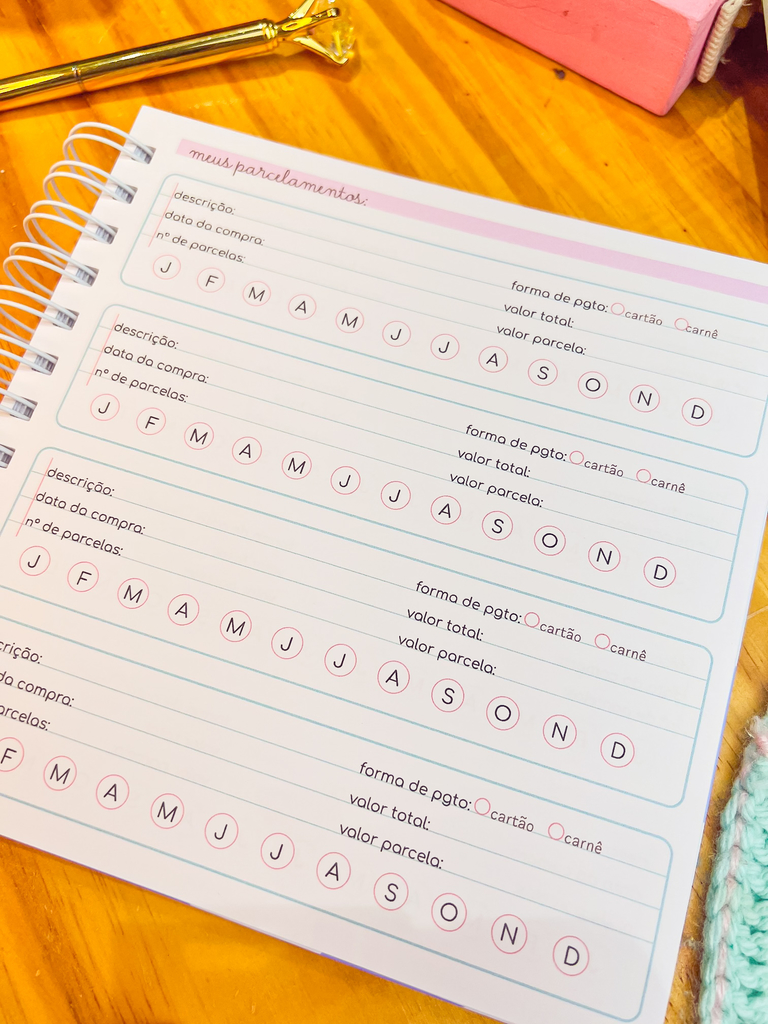 meus parcelamentos:
descrição:
data da compra:
nº de parcelas:
forma de pgto: cartão carnê
valor total:
valor parcela:
J F M A M J J A S O N D
descrição:
data da compra:
nº de parcelas:
forma de pgto: cartão carnê
valor total:
valor parcela:
J F M A M J J A S O N D
descrição:
data da compra:
nº de parcelas:
forma de pgto: cartão carnê
valor total:
valor parcela:
J F M A M J J A S O N D
crição:
da compra:
arcelas:
forma de pgto: cartão carnê
valor total:
valor parcela:
F M A M J J A S O N D